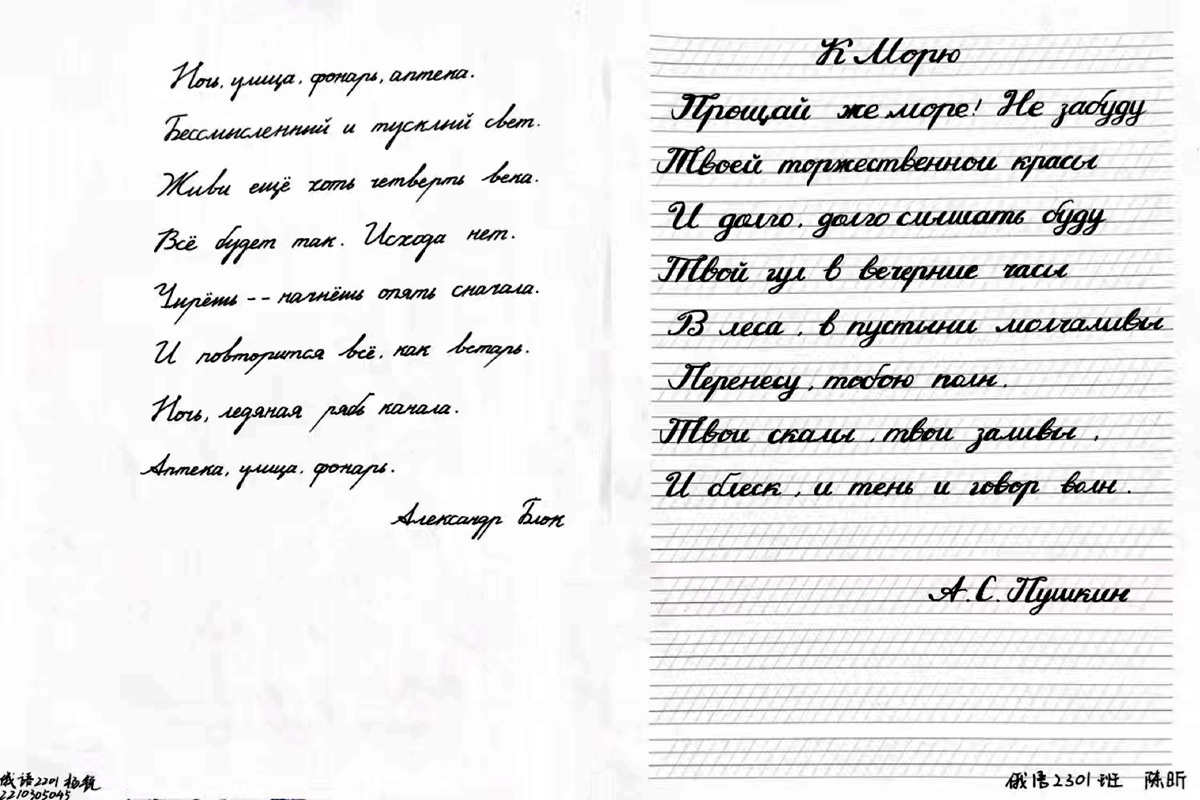 Ночь, улица, фонарь, аптека.
Бессмысленный и тусклый свет.
Живи ещё хоть четверть века.
Всё будет так. Исхода нет.
Умрёшь -- начнёшь опять сначала.
И повторится всё, как встарь.
Ночь, ледяная рябь канала.
Аптека, улица, фонарь.
Александр Блок
俄语2201 杨毓
2210305045
К Морю
Прощай же море! Не забуду
Твоей торжественной красы
И долго, долго слишать буду
Твой гул в вечерние часы
В леса, в пустыни молчаливы
Перенесу, тобою полн.
Твои скалы, твои заливы,
И блеск, и тень и говор волн.
А.С.Пушкин
俄语2301班 陈昕